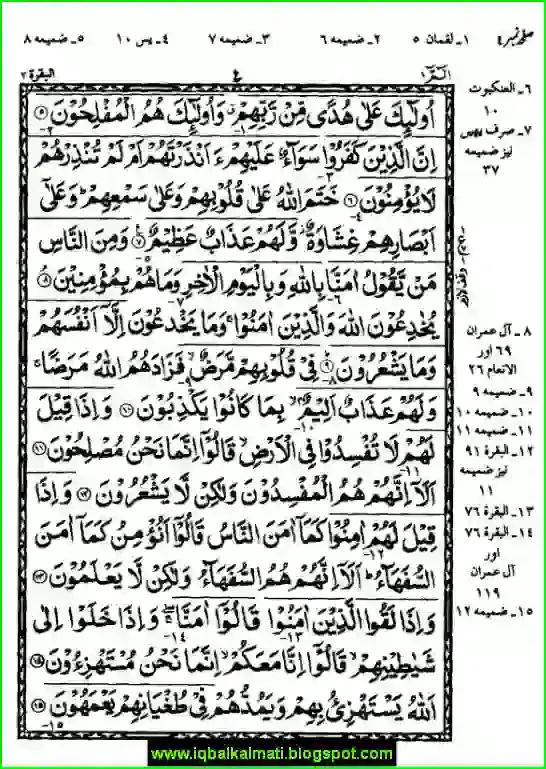 صفحہ نمبر ٤ ١۔ لقمان ٥ ٢۔ ضمیمہ ٦ ٣۔ ضمیمہ ٧ ٤۔ یٰس ١٠ ٥۔ ضمیمہ ٨
الٓمّٓ ١ ٤ البقرة ٢
اُولٰٓئِكَ عَلٰى هُدًى مِّنْ رَّبِّهِمْ وَاُولٰٓئِكَ هُمُ الْمُفْلِحُوْنَ ٥
اِنَّ الَّذِيْنَ كَفَرُوْا سَوَآءٌ عَلَيْهِمْ ءَاَنْذَرْتَهُمْ اَمْ لَمْ تُنْذِرْهُمْ
لَا يُؤْمِنُوْنَ ٦ خَتَمَ اللّٰهُ عَلٰى قُلُوْبِهِمْ وَعَلٰى سَمْعِهِمْ ؕ وَعَلٰٓى
اَبْصَارِهِمْ غِشَاوَةٌ ؗ وَّلَهُمْ عَذَابٌ عَظِيْمٌ ٧ وَمِنَ النَّاسِ
مَنْ يَّقُوْلُ اٰمَنَّا بِاللّٰهِ وَبِالْيَوْمِ الْاٰخِرِ وَمَا هُمْ بِمُؤْمِنِيْنَ ٨
يُخٰدِعُوْنَ اللّٰهَ وَالَّذِيْنَ اٰمَنُوْا ۚ وَمَا يَخْدَعُوْنَ اِلَّآ اَنْفُسَهُمْ
وَمَا يَشْعُرُوْنَ ٩ فِيْ قُلُوْبِهِمْ مَّرَضٌ ۙ فَزَادَهُمُ اللّٰهُ مَرَضًا ۚ
وَلَهُمْ عَذَابٌ اَلِيْمٌ ۙ بِمَا كَانُوْا يَكْذِبُوْنَ ١٠ وَاِذَا قِيْلَ
لَهُمْ لَا تُفْسِدُوْا فِي الْاَرْضِ ۙ قَالُوْٓا اِنَّمَا نَحْنُ مُصْلِحُوْنَ ١١
اَلَآ اِنَّهُمْ هُمُ الْمُفْسِدُوْنَ وَلٰكِنْ لَّا يَشْعُرُوْنَ ١٢ وَاِذَا
قِيْلَ لَهُمْ اٰمِنُوْا كَمَآ اٰمَنَ النَّاسُ قَالُوْٓا اَنُؤْمِنُ كَمَآ اٰمَنَ
السُّفَهَآءُ ؕ اَلَآ اِنَّهُمْ هُمُ السُّفَهَآءُ وَلٰكِنْ لَّا يَعْلَمُوْنَ ١٣
وَاِذَا لَقُوا الَّذِيْنَ اٰمَنُوْا قَالُوْٓا اٰمَنَّا ۖۚ وَاِذَا خَلَوْا اِلٰى
شَيٰطِيْنِهِمْ ۙ قَالُوْٓا اِنَّا مَعَكُمْ ۙ اِنَّمَا نَحْنُ مُسْتَهْزِءُوْنَ ١٤
اَللّٰهُ يَسْتَهْزِئُ بِهِمْ وَيَمُدُّهُمْ فِيْ طُغْيَانِهِمْ يَعْمَهُوْنَ ١٥
٦۔ العنکبوت
١٠
٧۔ صرف یہیں
نیز ضمیمہ
٣٧
وقف لازم
٨۔ آل عمران
٦٩ اور
الانعام ٢٦
٩۔ ضمیمہ ٩
١٠۔ ضمیمہ ١٠
١١۔ ضمیمہ ١١
١٢۔ البقرة ٩١
نیز ضمیمہ
١١
١٣۔ البقرة ٧٦
١٤۔ البقرة ٧٦
اور
آل عمران
١١٩
١٥۔ ضمیمہ ١٢
www.iqbalkalmati.blogspot.com